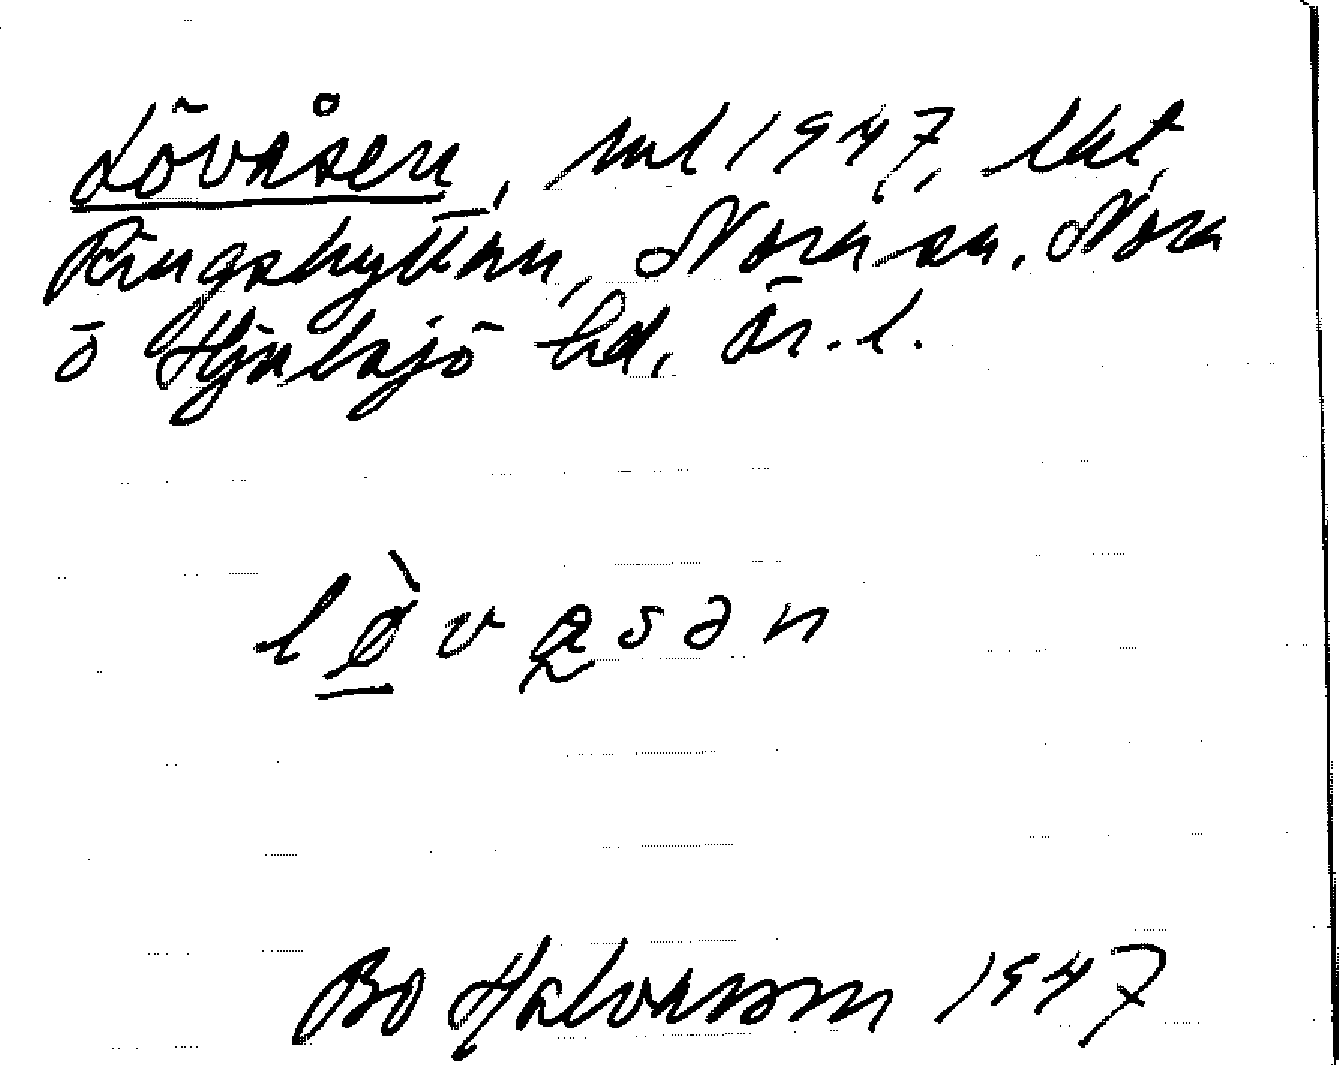 Lövåsen, bml 1947, lät,
Ringshyttan, Nora sn. Nora
o Hjulsjö hd, Ör. l.
lø̀vasən
Bo Halvarsson 1947